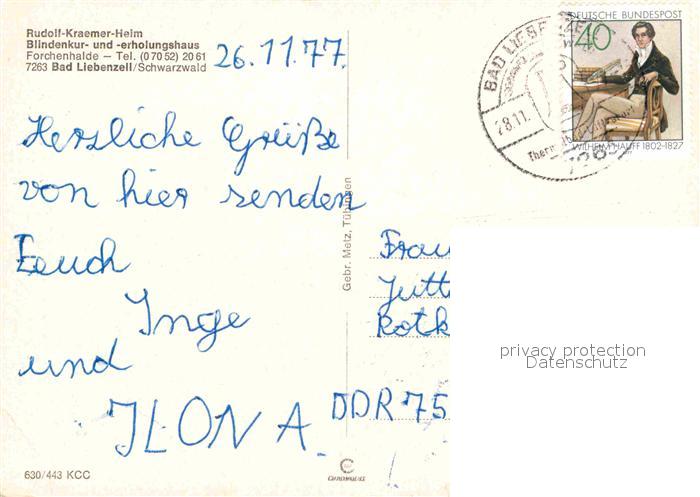 Rudolf-Kraemer-Heim
Blindenkur- und -erholungshaus
Forchenhalde – Tel. (0 70 52) 20 61
7263 Bad Liebenzell/Schwarzwald
26.11.77.
Herzliche Grüße
von hier senden
Eeuch
Inge
und
ILONA.
630/443 KCC
Gebr. Metz, Tübingen
DEUTSCHE BUNDESPOST
40
WILHELM HAUFF 1802-1827
BAD LIEBE
28.11.
Frau
Jutt
Rotk
DDR 75
privacy protection
Datenschutz